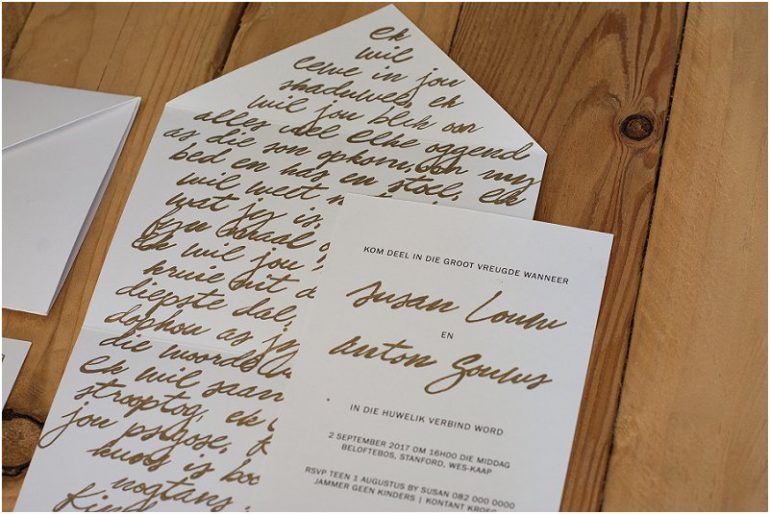 Ek
wil
eeue in jou
skaduwee, ek
wil jou blik oor
alles voel Elke oggend
as die son opkom, oor my
bed en kas en stoel. Ek
wil weet
wat jy is,
Ek wil jou
kruie uit d
diepste dal,
ophou as
die woorde
Ek wil saam
strooptog, ek
jou
is
nogtans.
KOM DEEL IN DIE GROOT VREUGDE WANNEER
Susan Louw
EN
Anton Goulus
IN DIE HUWELIK VERBIND WORD
2 SEPTEMBER 2017 OM 16H00 DIE MIDDAG
BELOFTEBOS, STANFORD, WES-KAAP
RSVP TEEN 1 AUGUSTUS BY SUSAN 082 000 0000
JAMMER GEEN KINDERS | KONTANT KROEG